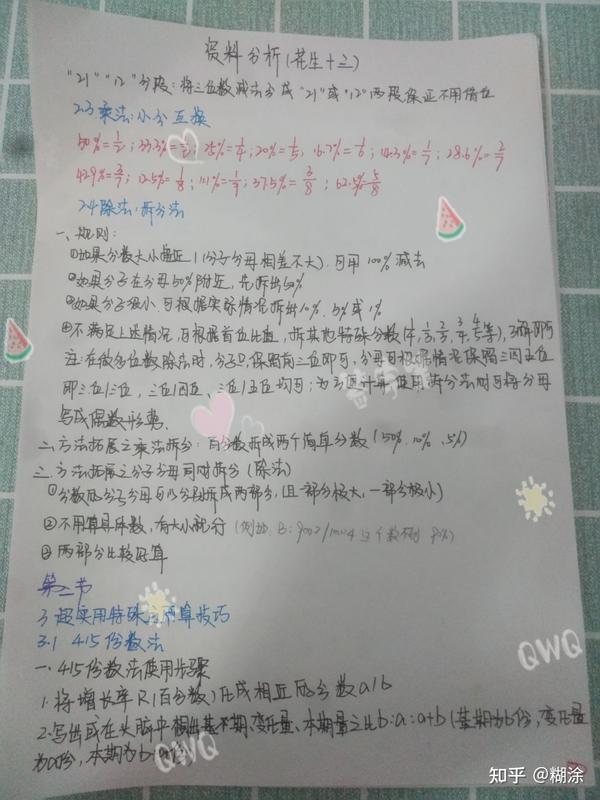 资料分析(花生十三)
"21""12"分段:将三位数减法分成"21"或"12"两段,保证不用借位
2.3乘法:小分互换
50%=1/2; 33.3%=1/3; 25%=1/4; 20%=1/5, 16.7%=1/6; 14.3%=1/7; 28.6%=2/7
42.9%=3/7; 12.5%=1/8; 11.1%=1/9; 37.5%=3/8; 62.5%=5/8
2.4除法:拆分法
一、规则:
①如果分数大小接近1(分子分母相差不大),可用100%减去
②如果分子在分母50%附近,先拆出50%
③如果分子很小,可根据实际情况拆出10%、5%或1%
④不满足上述情况,可根据首位比重,拆其他特殊分数
注:在做多位数除法时,分子只保留前三位即可,分母可根据情况保留三四五位
即三位/三位、三位/四位、三位/五位均可;为方便计算,使用拆分法时可将分母
写成偶数形势、
二、方法拓展之乘法拆分:百分数拆成两个简单分数(50%、10%、5%)
三、方法拓展之分子分母同时拆分(除法)
①分数的分子分母可以分别拆成两部分,且一部分极大,一部分极小)
②不用算具体数,有大小就行
③两部分比较好算
第二节
3 超实用特殊 算技巧
3.1 415份数法
一、415份数法使用步骤
1.将增长率R(百分数)化成相近的分数a/b
2.写出或在头脑中 出基期、变化量、本期量之比b:a:a+b(基期为b份,变化量
为a份,本期为
QWQ
QWQ
知乎 @糊涂